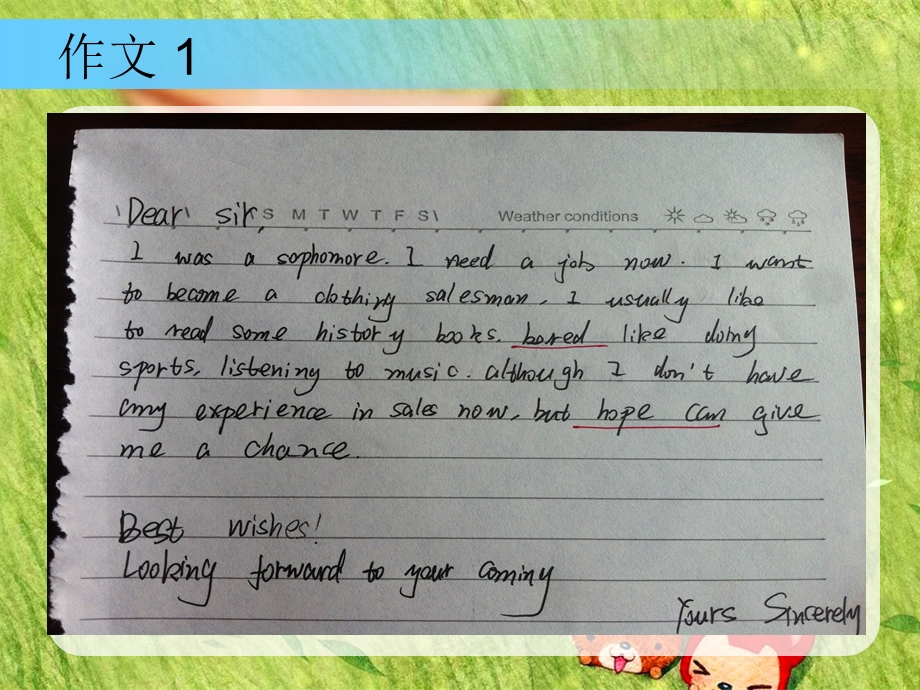 作文 1
Dear sir,
S M T W T F S Weather conditions
I was a sophomore. I need a job now. I want
to become a clothing salesman, I usually like
to read some history books. bored like doing
sports, listening to music. although I don't have
any experience in sales now, but hope can give
me a chance.
Best wishes!
Looking forward to your coming
Yours Sincerely